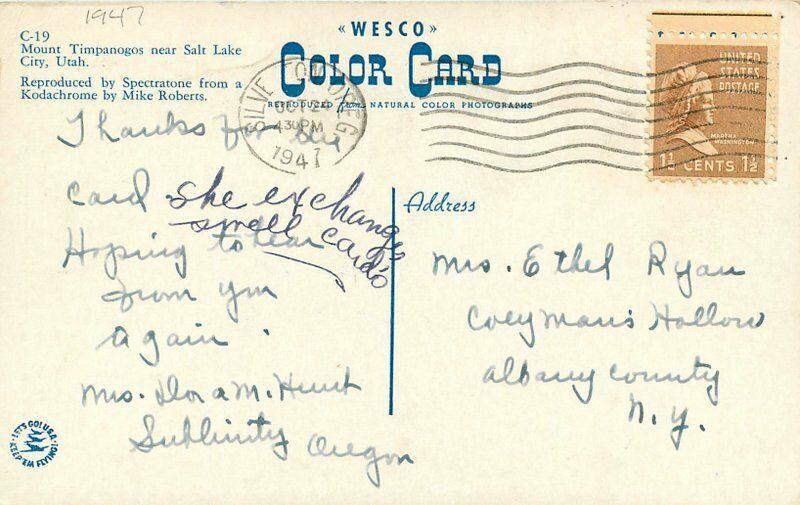 1947
C-19
Mount Timpanogos near Salt Lake
City, Utah.
Reproduced by Spectratone from a
Kodachrome by Mike Roberts.
«WESCO»
COLOR CARD
REPRODUCED from NATURAL COLOR PHOTOGRAPHS
OCT 24
430PM
1947
UNITED
STATES
POSTAGE
MARTHA
WASHINGTON
1½ CENTS 1½
Thanks for the
card
she exchanges
swell cards
Hoping to hear
from you
again.
Mrs. Dora M. Hunt
Sublimity Oregon
Address
Mrs. Ethel Ryan
Coeymans Hollow
Albany County
N.Y.
LET'S GO! USA
KEEP 'EM FLYING!